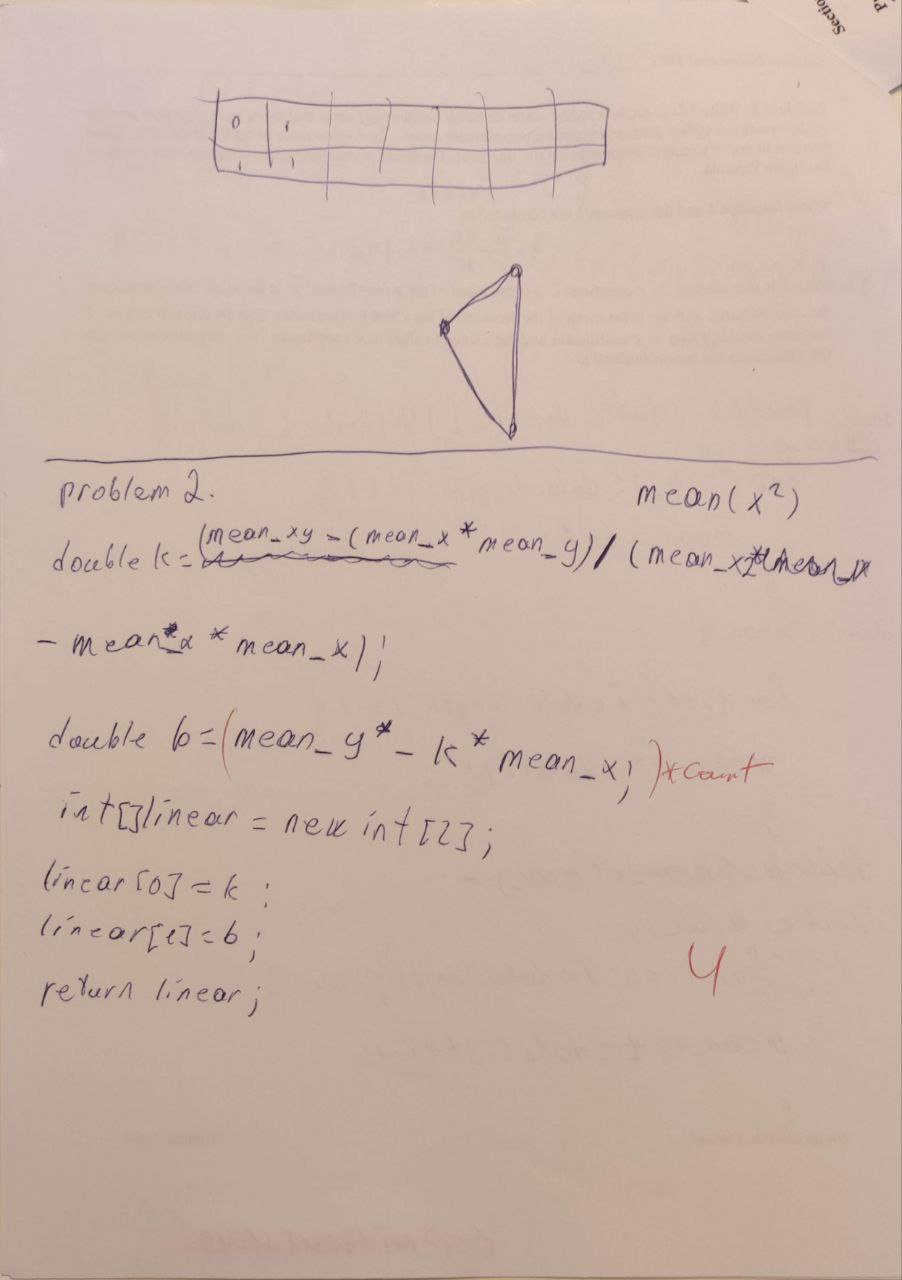 Sectio
0 1
1 1
problem 2.
mean(x²)
double k = (mean_xy - (mean_x * mean_y) / (mean_x2
- mean_x * mean_x);
double b = (mean_y - k * mean_x; ) * count
int[] linear = new int[2];
linear[0] = k;
linear[1] = b;
return linear;
4